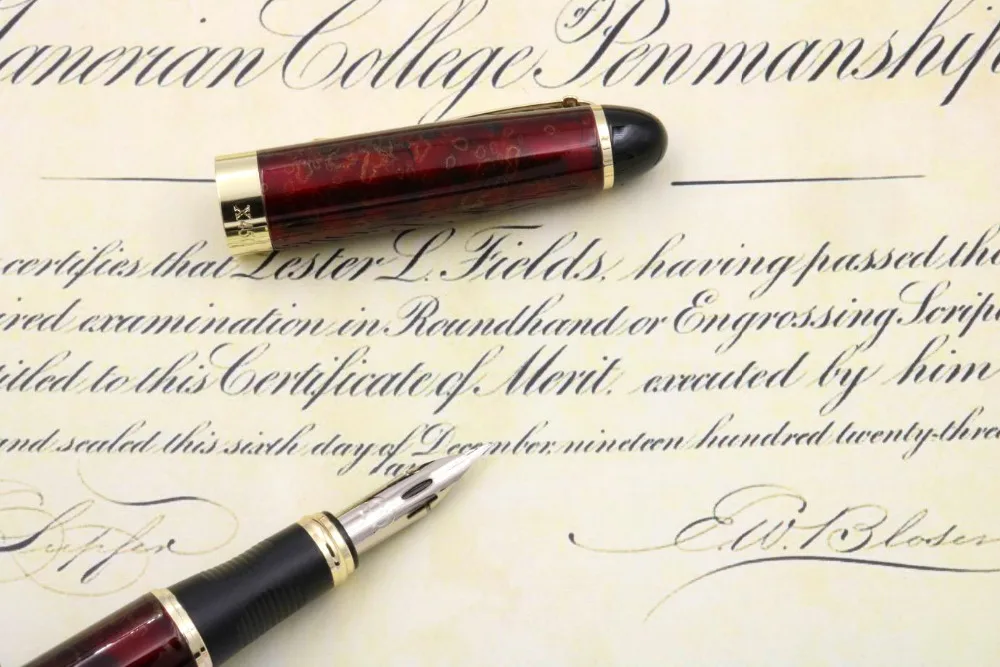 anerian College of Penmanship
certifies that Lester L. Fields, having passed the
ired examination in Roundhand or Engrossing Script
itled to this Certificate of Merit. executed by him
and sealed this sixth day of December nineteen hundred twenty-three
Lupfer
E.W. Bloser